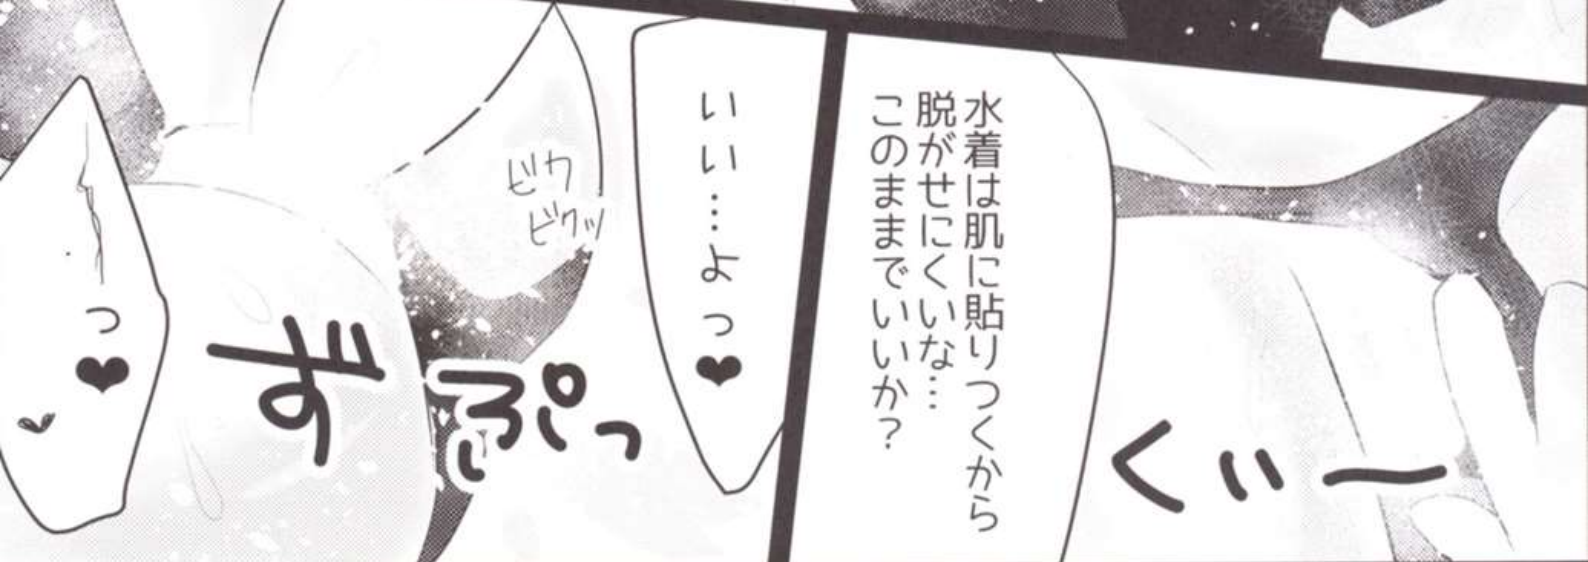 水着は肌に貼りつくから
脱がせにくいな…
このままでいいか?
くぃー
いい…よっ♥
ビク
ビクッ
ずぷっ
っ♥